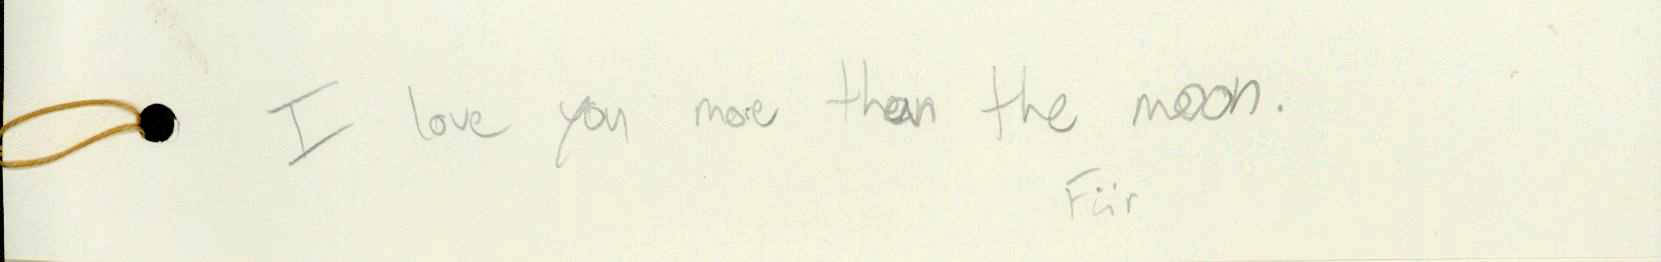 I love you more than the moon.
Für